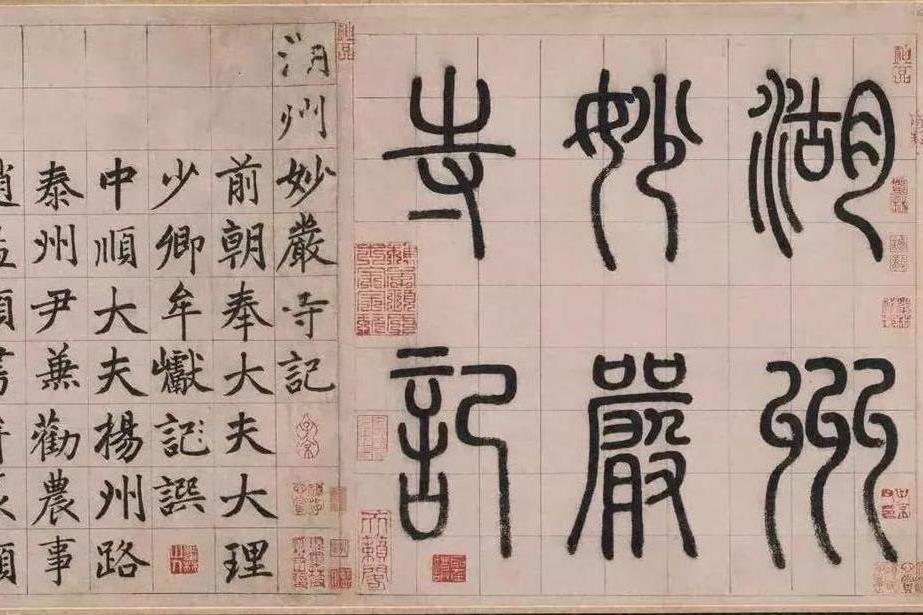 湖州
妙嚴
寺記
湖州妙嚴寺記
前朝奉大夫大理
少卿牟巘記譔
中順大夫楊州路
泰州尹兼勸農事